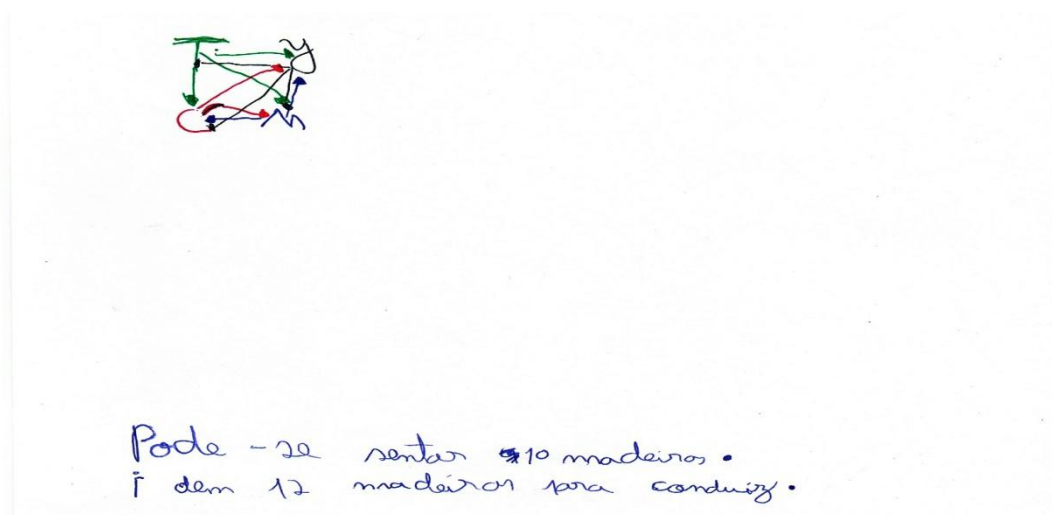 T Y
C M
Pode-se sentar 10 madeiras.
I dem 12 madeiras para conduiz.